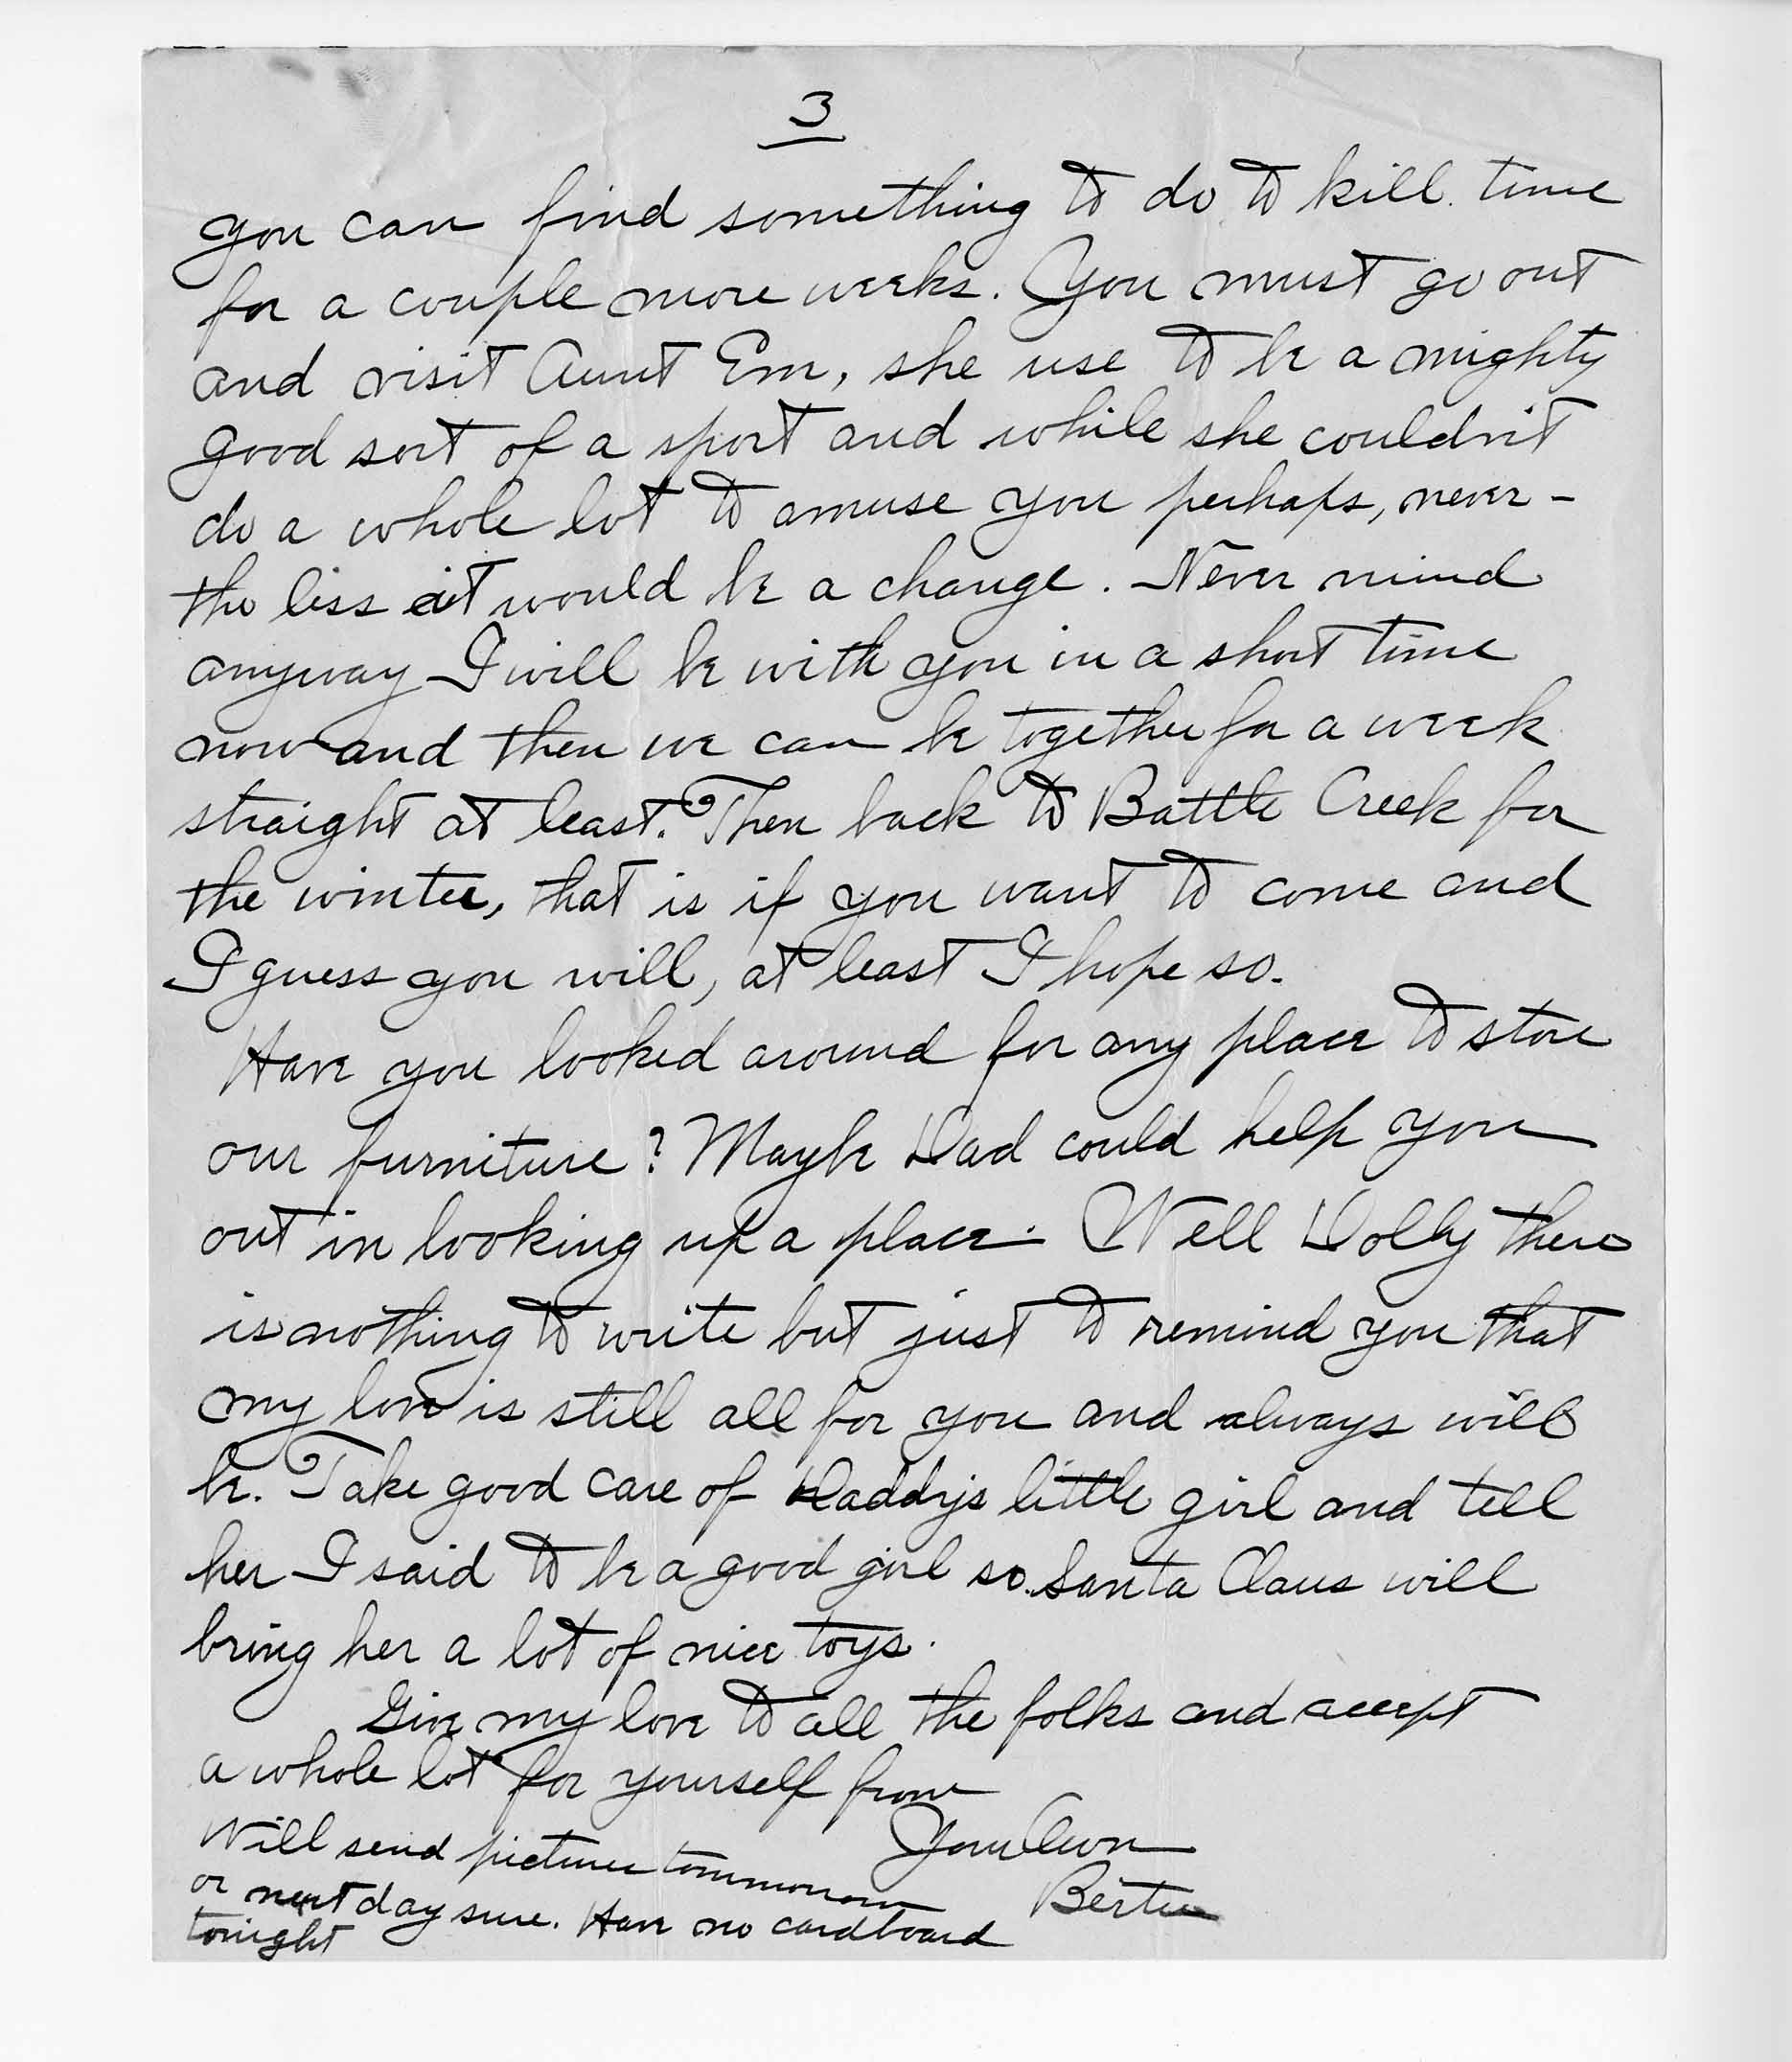 3
you can find something to do to kill time
for a couple more weeks. You must go out
and visit Aunt Em, she use to be a mighty
good sort of a sport and while she couldn't
do a whole lot to amuse you perhaps, never-
the less it would be a change. Never mind
anyway I will be with you in a short time
now and then we can be together for a week
straight at least. Then back to Battle Creek for
the winter, that is if you want to come and
I guess you will, at least I hope so.
Have you looked around for any place to store
our furniture? Maybe Dad could help you
out in looking up a place. Well Dolly there
is nothing to write but just to remind you that
my love is still all for you and always will
be. Take good care of Daddys little girl and tell
her I said to be a good girl so Santa Claus will
bring her a lot of nice toys.
Give my love to all the folks and accept
a whole lot for yourself from
Your Own
Bertie
Will send pictures tommorrow
or next day sure. Have no cardboard
tonight